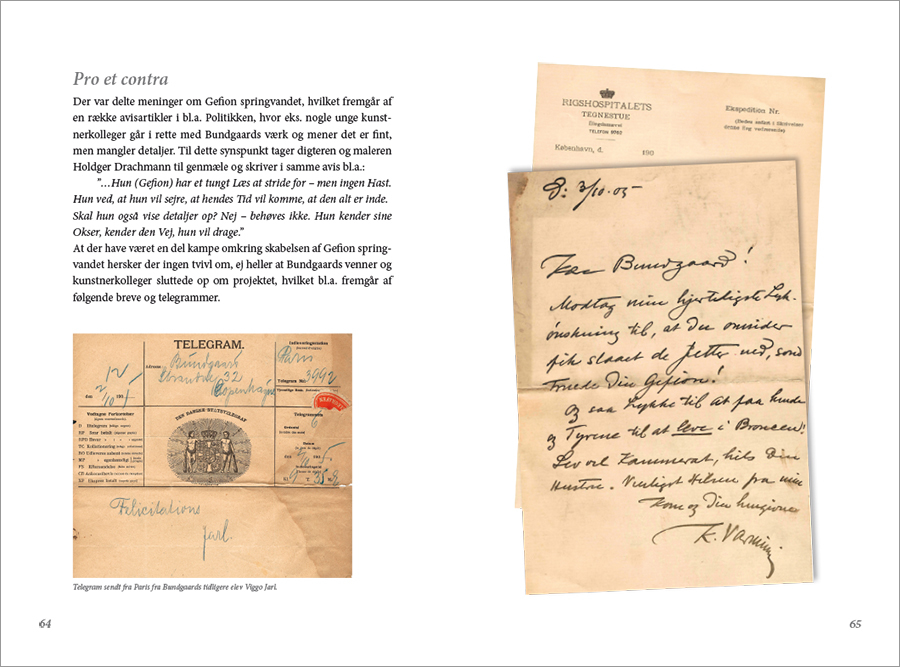 Pro et contra
Der var delte meninger om Gefion springvandet, hvilket fremgår af
en række avisartikler i bl.a. Politikken, hvor eks. nogle unge kunst-
nerkolleger går i rette med Bundgaards værk og mener det er fint,
men mangler detaljer. Til dette synspunkt tager digteren og maleren
Holdger Drachmann til genmæle og skriver i samme avis bl.a.:
”…Hun (Gefion) har et tungt Læs at stride for – men ingen Hast.
Hun ved, at hun vil sejre, at hendes Tid vil komme, at den alt er inde.
Skal hun også vise detaljer op? Nej – behøves ikke. Hun kender sine
Okser, kender den Vej, hun vil drage.”
At der have været en del kampe omkring skabelsen af Gefion spring-
vandet hersker der ingen tvivl om, ej heller at Bundgaards venner og
kunstnerkolleger sluttede op om projektet, hvilket bl.a. fremgår af
følgende breve og telegrammer.
TELEGRAM.
Paris
Bundgaard
32
Copenhagen
Telegram No 3992
DEN DANSKE STATSTELEGRAF
Felicitations
Jarl.
Telegram sendt fra Paris fra Bundgaards tidligere elev Viggo Jarl.
64
RIGSHOSPITALETS
TEGNESTUE
TELEFON
Ekspedition Nr.
København, d. 190
3/10.05
Kære Bundgaard!
Modtag min hjerteligste Lyk-
ønskning til, at Du omsider
fik slaaet de Jetter ned, som
truede Din Gefion!
Og saa Lykke til at faa hende
og Tyrene til at leve i Broncen!
Lev vel Kammerat, hils Din
Hustru. Venligst Hilsen fra min
Kone og Din hengivne
K. Varming
65